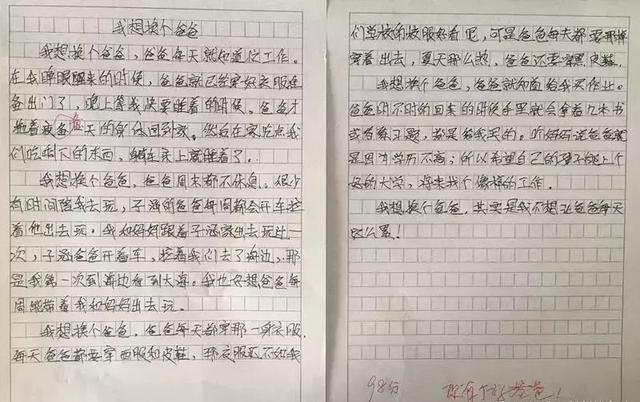 我想换个爸爸
我想换个爸爸，爸爸每天就知道位工作。
在我睁眼醒来的时候，爸爸就已经穿好衣服准
备出门了，晚上等我快要睡着的时候，爸爸才
拖着疲备一天的身体回到家。然后在家吃点我
们吃剩下的东西，躺在床上就睡着了。
我想换个爸爸，爸爸周末都不休息。很少
有时间陪我去玩，子涵的爸爸每周都会开车拉
着他出去玩，我和妈妈跟着子涵家出去玩过一
次，子涵爸爸开着车，拉着我们去了海边，那
是我第一次到海边看到大海。我也好想爸爸每
周能带着我和妈妈出去玩。
我想换个爸爸，爸爸每天都穿那一身衣服，
每天爸爸都要穿西服和皮鞋，那衣服还不如我
们学校的校服好看呢，可是爸爸每天都要那样
穿着出去，夏天那么热，爸爸还要穿黑皮鞋。
我想换个爸爸，爸爸就知道给我买作业。
爸爸时不时的回来的时候手里就会拿着几本书
或者练习题，都是给我买的。听妈妈说爸爸就
是因为学历不高，所以希望自己的孩子能上个
好的大学，将来找个像样的工作。
我想换个爸爸，其实是我不想让爸爸每天
这么累！
98分
你有个好爸爸！